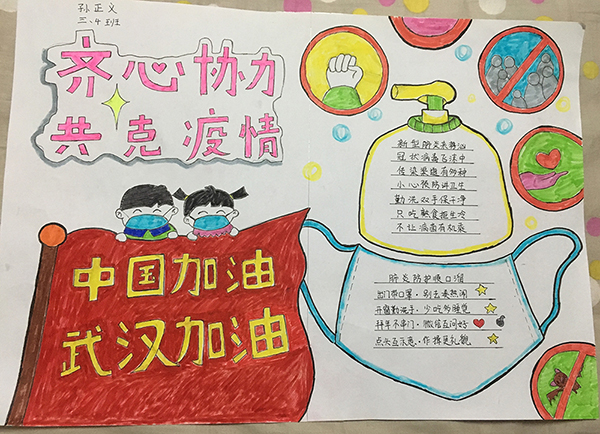 孙正义
三、4班
齐心协力
共克疫情
中国加油
武汉加油
新型肺炎来势汹
冠状病毒飞沫中
传染渠道有多种
小心预防讲卫生
勤洗双手保干净
只吃熟食拒生冷
不让病毒有机乘
肺炎防护顺口溜
出门带口罩，别去凑热闹
开窗勤洗手，少吃多睡觉
拜年不串门，微信互问好
点头互示意，作揖更礼貌